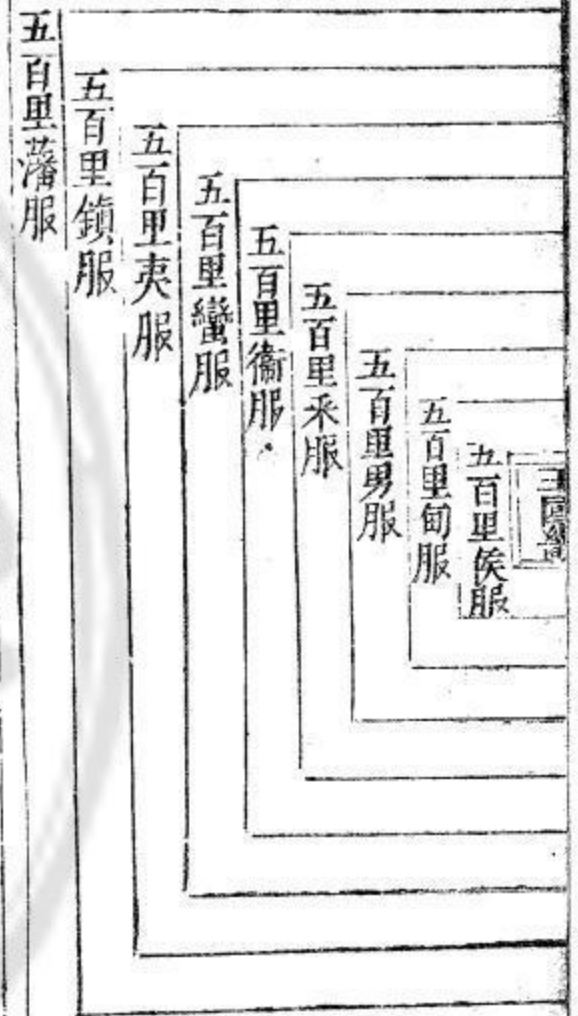 王國畿
五百里侯服
五百里甸服
五百里男服
五百里采服
五百里衞服
五百里蠻服
五百里夷服
五百里鎮服
五百里藩服